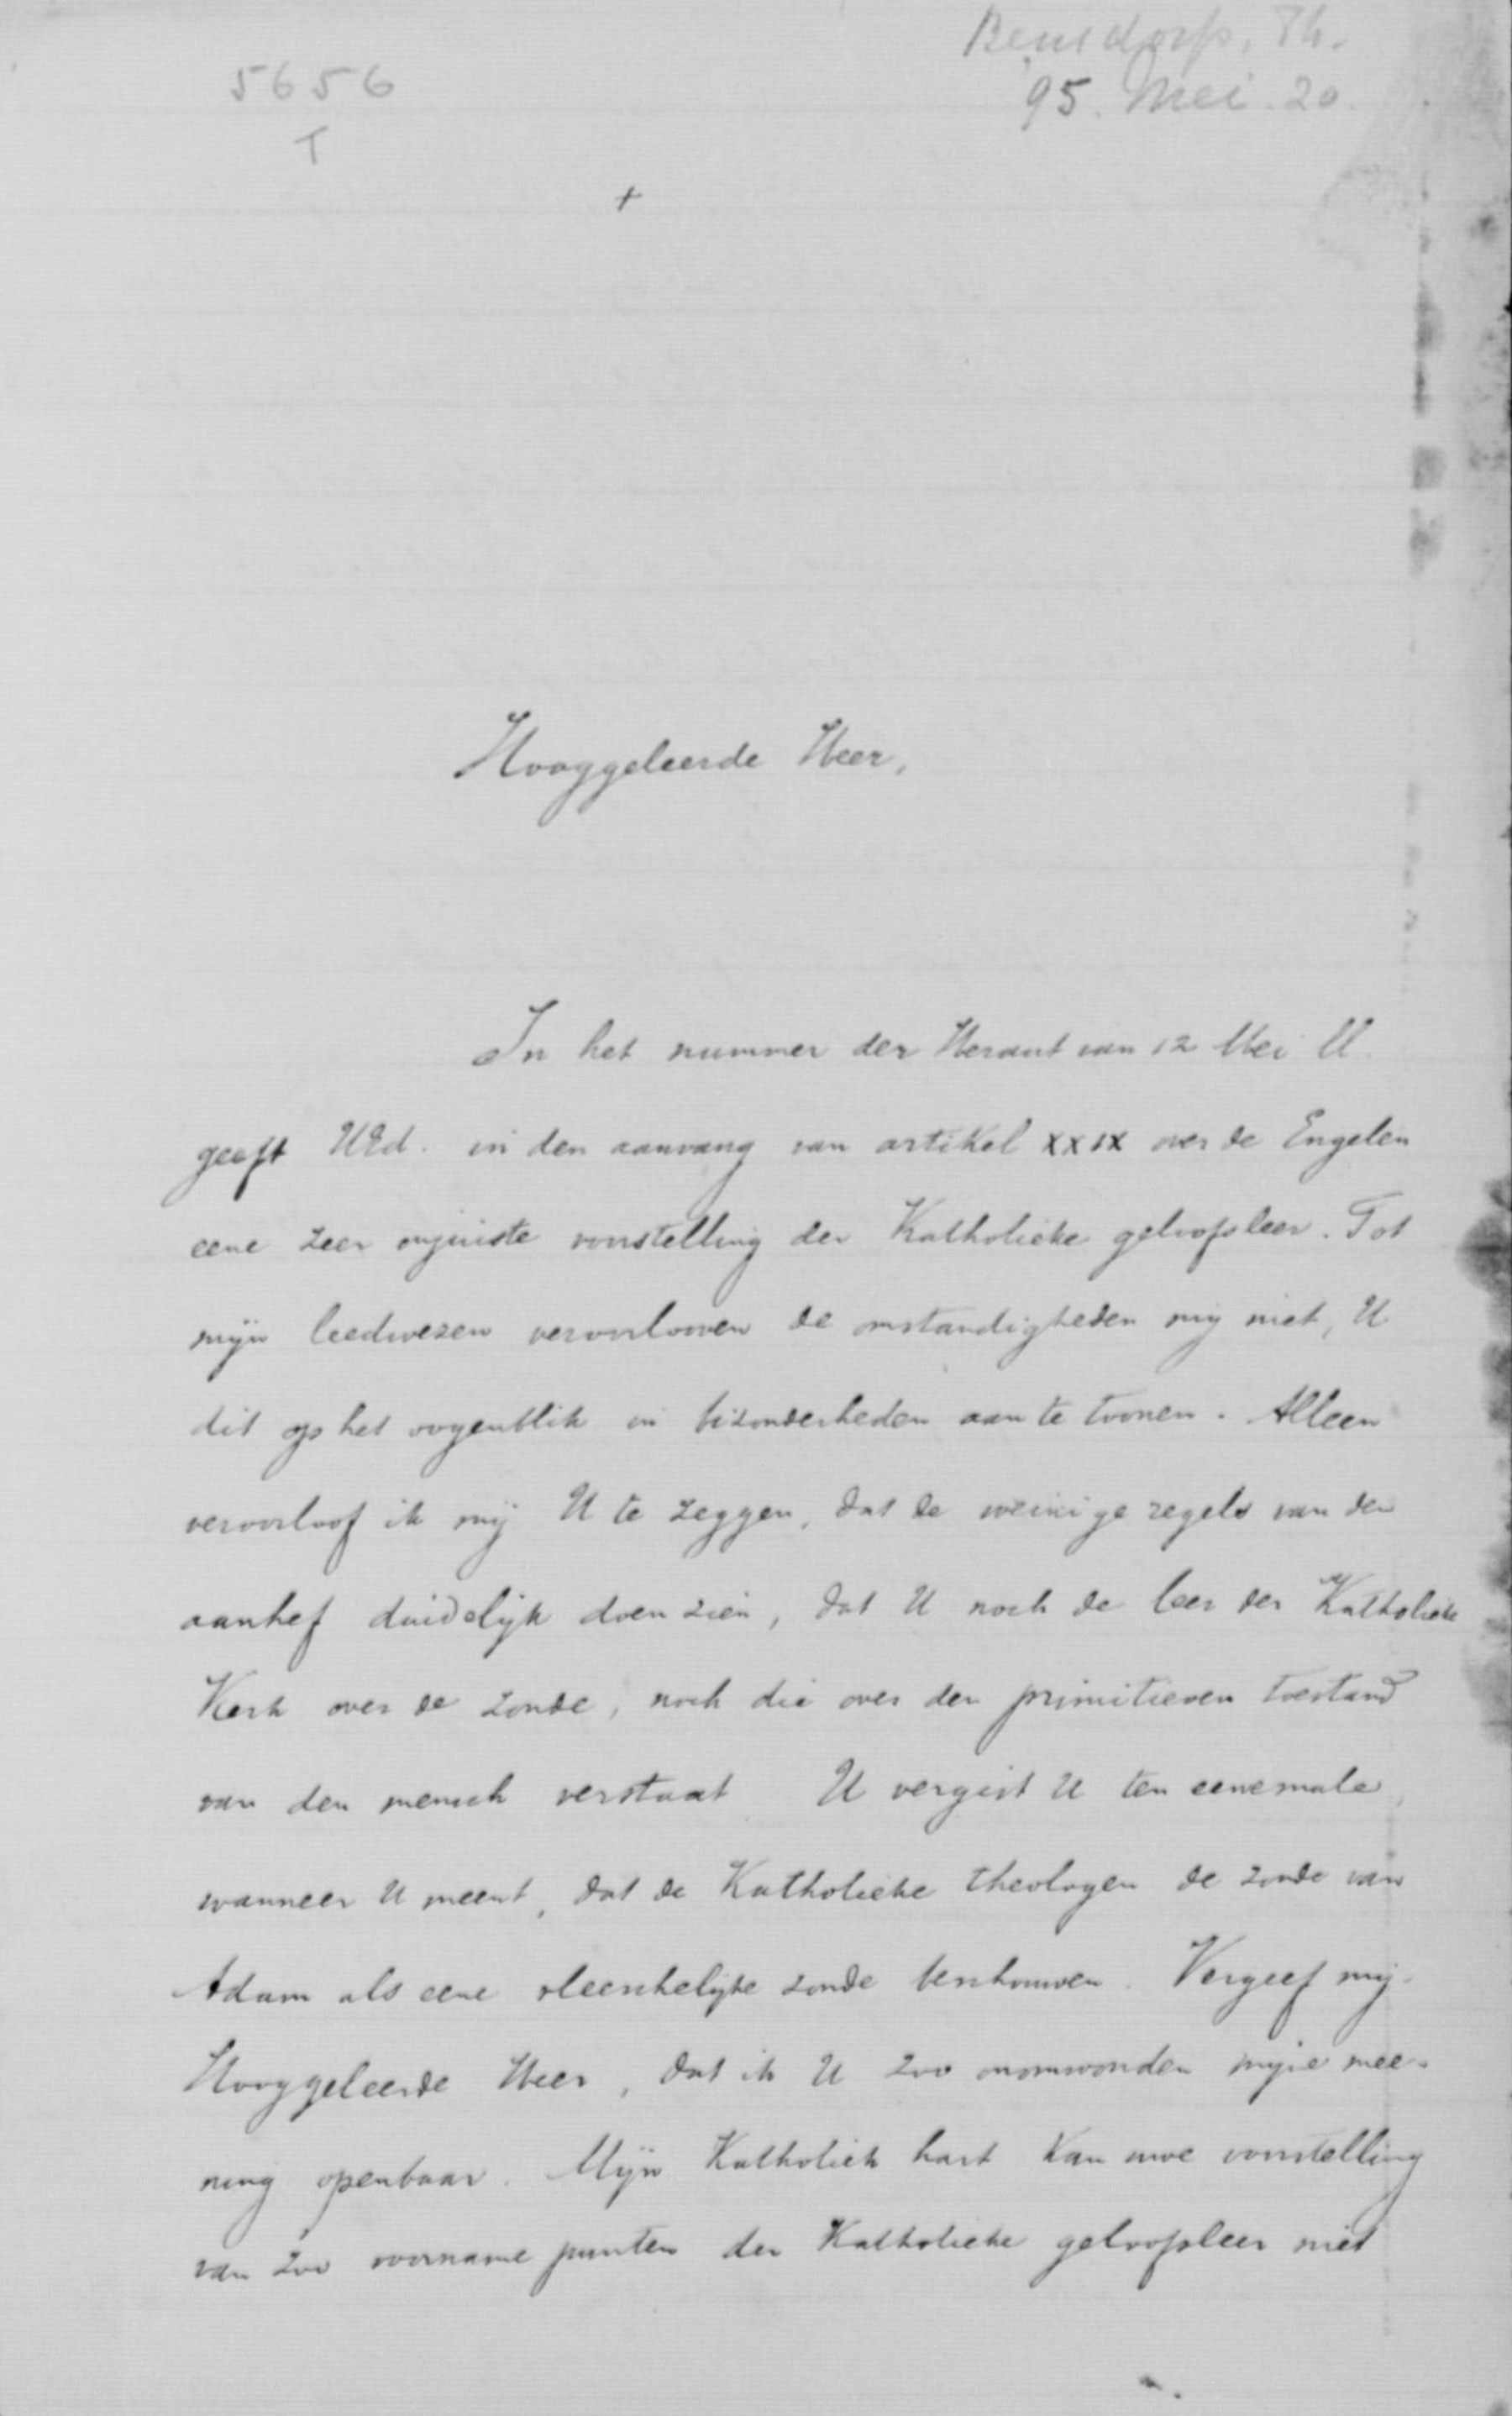 Bensdorp, Th.
5656
95. Mei. 20.
T
+
Hooggeleerde Heer,
In het nummer der Heraut van 12 Mei ll.
geeft UEd. in den aanvang van artikel XXIX over de Engelen
eene zeer onjuiste voorstelling der Katholieke geloofsleer. Tot
mijn leedwezen veroorloven de omstandigheden mij niet, U
dit op het oogenblik in bizonderheden aan te toonen. Alleen
veroorloof ik mij U te zeggen, dat de weinige regels van den
aanhef duidelijk doen zien, dat U noch de leer der Katholieke
Kerk over de zonde, noch die over den primitieven toestand
van den mensch verstaat. U vergist U ten eenemale,
wanneer U meent, dat de Katholieke theologen de zonde van
Adam als eene vleeschelijke zonde beschouwen. Vergeef mij
Hooggeleerde Heer, dat ik U zoo onomwonden mijne mee-
ning openbaar. Mijn Katholiek hart kan uwe voorstelling
van zoo voorname punten der Katholieke geloofsleer niet